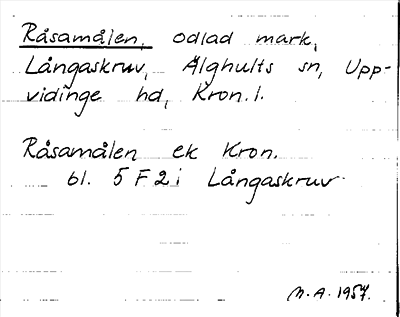 Råsamålen, odlad mark,
Långaskruv, Älghults sn, Upp-
vidinge hd, Kron. l.
Råsamålen ek Kron.
bl. 5 F 2 i Långaskruv
M. A. 1957.